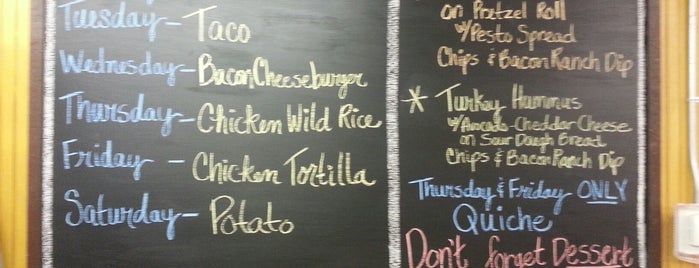 Tuesday - Taco
Wednesday - Bacon Cheeseburger
Thursday - Chicken Wild Rice
Friday - Chicken Tortilla
Saturday - Potato
on Pretzel Roll
w/Pesto Spread
Chips & Bacon Ranch Dip
* Turkey Hummus
w/Avocado-Cheddar Cheese
on Sour Dough Bread
Chips & Bacon Ranch Dip
Thursday & Friday ONLY
Quiche
Don't forget Dessert